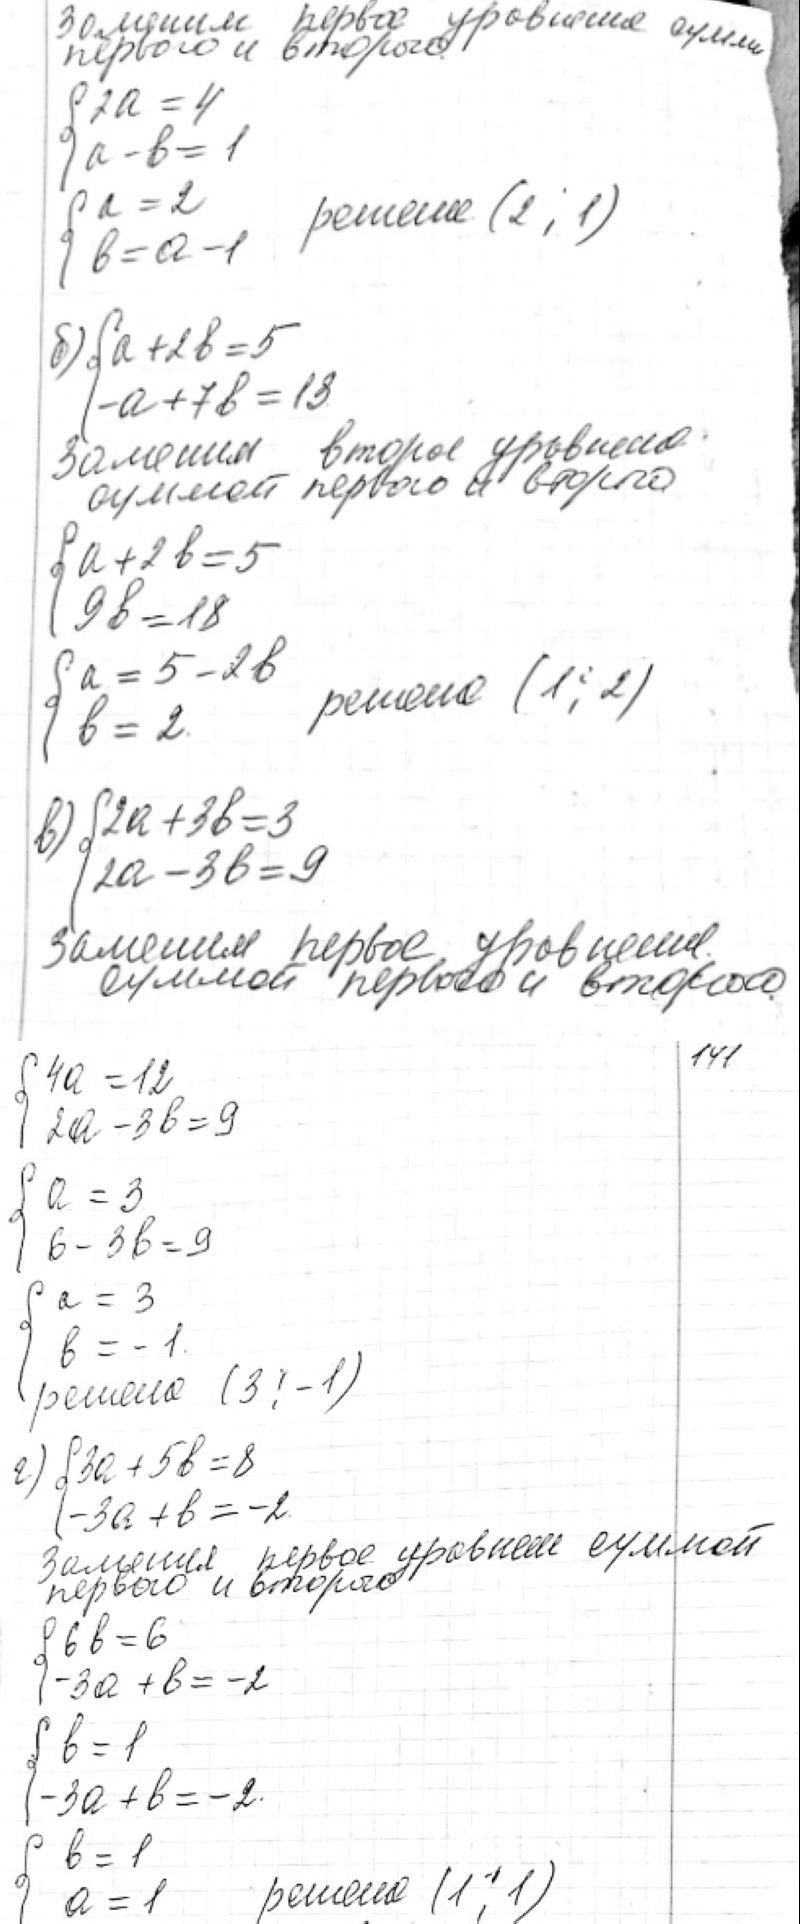 Заменим первое уровнение сумм
первого и второго
{2a = 4
{a - b = 1
{a = 2
{b = a - 1 решение (2; 1)
б) {a + 2b = 5
{-a + 7b = 13
Заменим второе уровнение
суммой первого и второго
{a + 2b = 5
{9b = 18
{a = 5 - 2b
{b = 2. решение (1; 2)
в) {2a + 3b = 3
{2a - 3b = 9
Заменим первое уровнение
суммой первого и второго
{4a = 12
141
{2a - 3b = 9
{a = 3
{6 - 3b = 9
{a = 3
{b = -1.
решение (3; -1)
г) {3a + 5b = 8
{-3a + b = -2
Заменим первое уровнение суммой
первого и второго
{6b = 6
{-3a + b = -2
{b = 1
{-3a + b = -2.
{b = 1
{a = 1 решение (1; 1)